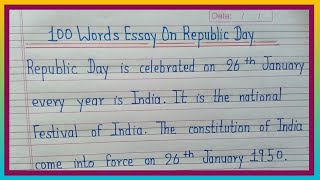 Date: / /
100 Words Essay On Republic Day
Republic Day is celebrated on 26th January
every year is India. It is the national
Festival of India. The constitution of India
come into force on 26th January 1950.